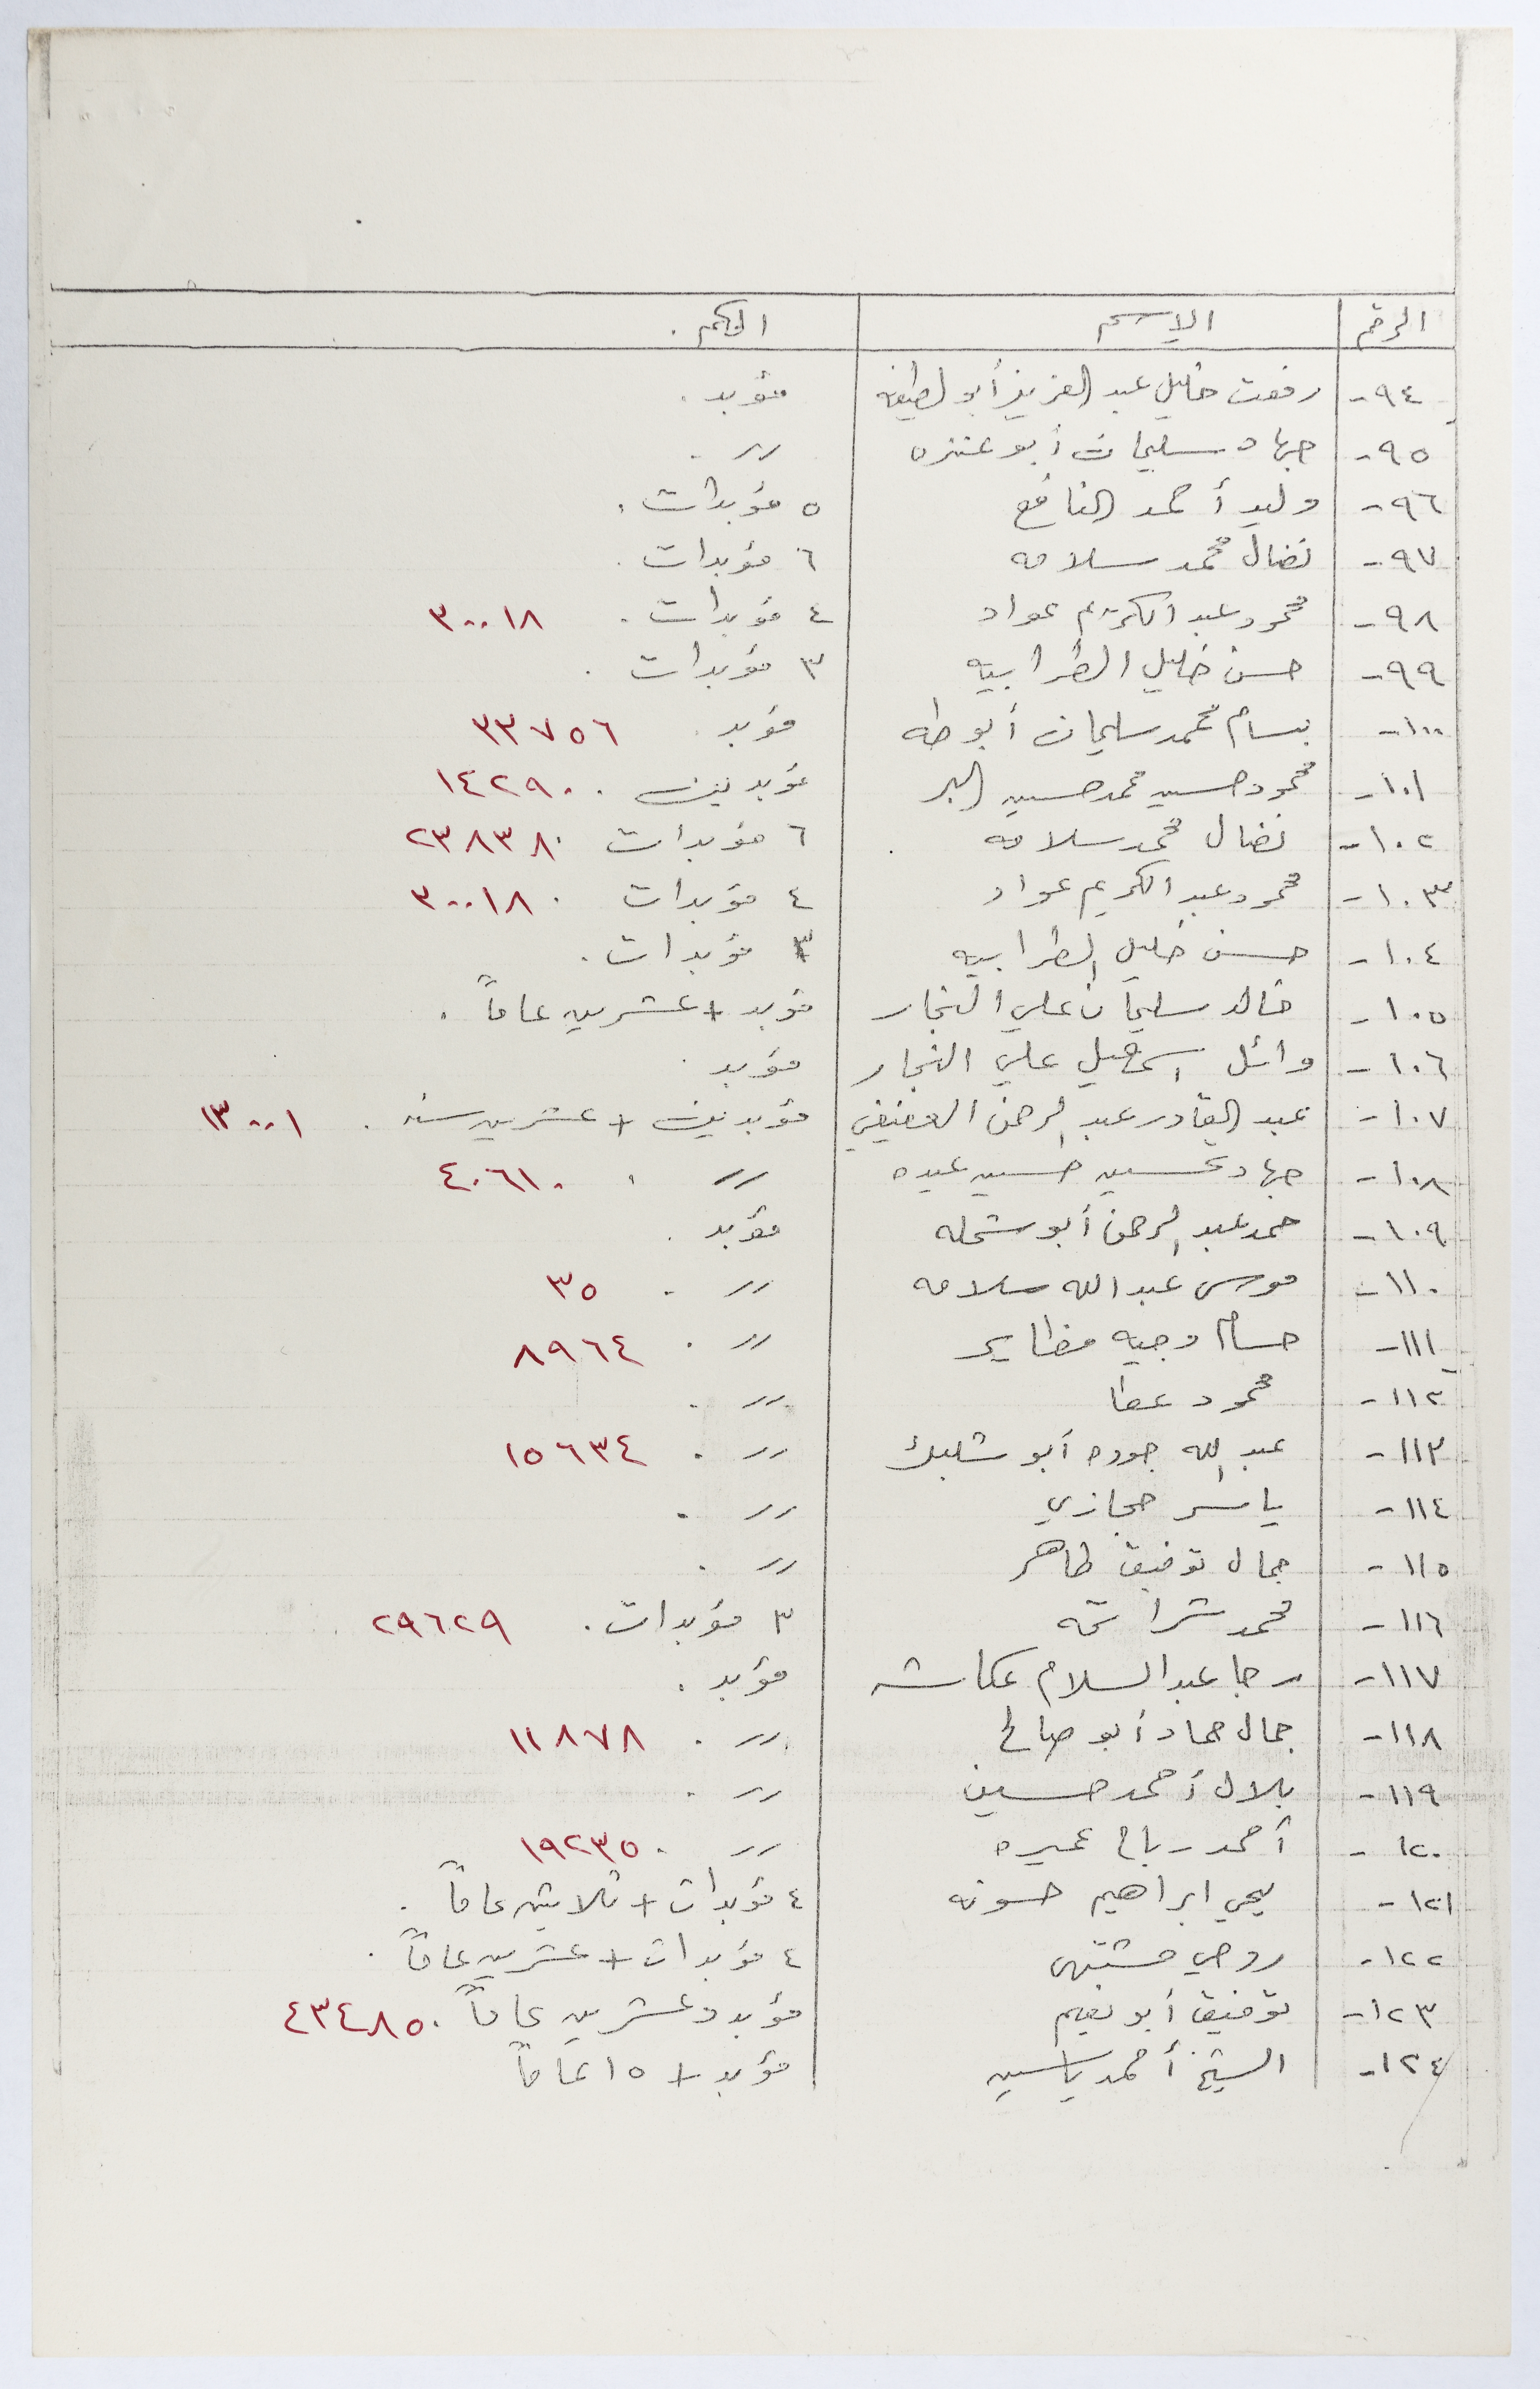 الرقم الاسم الحكم .
٩٤- رفعت خليل عبد العزيز أبو لطيفه مؤبد .
٩٥- جهاد سليمان أبو عنزه رر .
٩٦- وليد أحمد النافع ٥ مؤبدات .
٩٧- نضال محمد سلامه ٦ مؤبدات .
٩٨- محمود عبد الكريم عواد ٤ مؤبدات . ٣٠٠١٨
٩٩- حسن خليل الطرابيه ٣ مؤبدات .
١٠٠- بسام محمد سليمان أبو طه مؤبد . ٣٣٧٥٦
١٠١- محمود حسين محمد حسين البر مؤبدين . ١٤٢٩٠
١٠٢- نضال محمد سلامه ٦ مؤبدات . ٢٣٨٣٨
١٠٣- محمود عبد الكريم عواد ٤ مؤبدات . ٣٠٠١٨
١٠٤- حسن خليل الطرابيه ٣ مؤبدات .
١٠٥- خالد سليمان علي النجار مؤبد + عشرين عاماً .
١٠٦- وائل اسمعيل علي النجار مؤبد .
١٠٧- عبد القادر عبد الرحمن العفيفي مؤبدين + عشرين سنه . ١٣٠٠١
١٠٨- جهاد حسين عبده رر . ٤٠٦١٠
١٠٩- حمد عبد الرحمن أبو شمله مؤبد .
١١٠- موسى عبد الله سلامه رر . ٣٥
١١١- حسام وجيه رر . ٨٩٦٤
١١٢- محمود عطا رر .
١١٣- عبد الله جوده أبو شلبك رر . ١٥٦٣٤
١١٤- ياسر حجازي رر .
١١٥- جمال توفيق طاهر رر .
١١٦- محمد شراتحه ٣ مؤبدات . ٢٩٦٢٩
١١٧- رجا عبد السلام عكاشه مؤبد .
١١٨- جمال حماد أبو صالح رر . ١١٨٧٨
١١٩- بلال أحمد حسين رر .
١٢٠- أحمد رباح عميره رر . ١٩٢٣٥
١٢١- يحيي ابراهيم حسونه ٤ مؤبدات + ثلاثين عاماً .
١٢٢- روحي مشتهى ٤ مؤبدات + عشرين عاماً .
١٢٣- توفيق أبو نعيم مؤبد وعشرين عاماً . ٤٣٤٨٥
١٢٤- الشيخ أحمد ياسين مؤبد + ١٥ عاماً